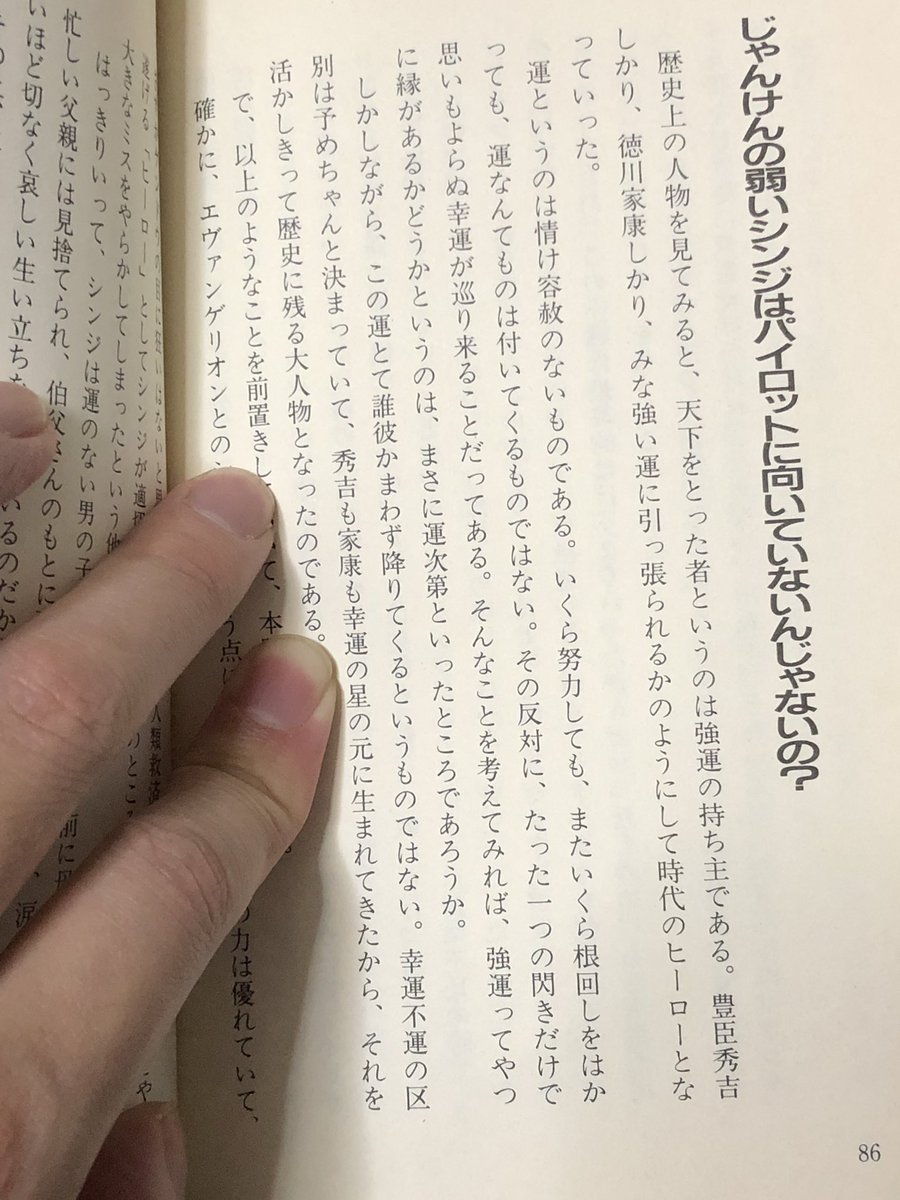 じゃんけんの弱いシンジはパイロットに向いていないんじゃないの?
歴史上の人物を見てみると、天下をとった者というのは強運の持ち主である。豊臣秀吉
しかり、徳川家康しかり、みな強い運に引っ張られるかのようにして時代のヒーローとな
っていった。
運というのは情け容赦のないものである。いくら努力しても、またいくら根回しをはか
っても、運なんてものは付いてくるものではない。その反対に、たった一つの閃きだけで
思いもよらぬ幸運が巡り来ることだってある。そんなことを考えてみれば、強運ってやつ
に縁があるかどうかというのは、まさに運次第といったところであろうか。
しかしながら、この運とて誰彼かまわず降りてくるというものではない。幸運不運の区
別は予めちゃんと決まっていて、秀吉も家康も幸運の星の元に生まれてきたから、それを
活かしきって歴史に残る大人物となったのである。
で、以上のようなことを前置きし て、本
確かに、エヴァンゲリオンとの う点に の力は優れていて、
86
遂げる「ヒーロー」としてシンジが適 人類救済
大きなミスをやらかしてしまったという他 のところ
はっきりいって、シンジは運のない男の子
忙しい父親には見捨てられ、伯父さんのもとに 前に
いほど切なく哀しい生い立ち いるのだか 、涙